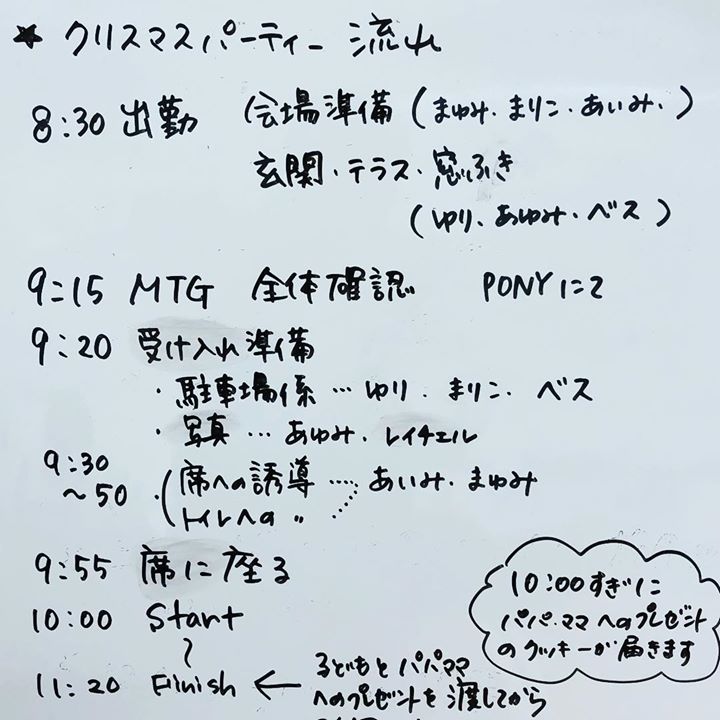 ★ クリスマスパーティー 流れ
8:30 出勤 会場準備 (まゆみ.まりこ.あいみ.)
玄関.テラス.窓ふき
(ゆり.あゆみ.ベス)
9:15 MTG 全体確認 PONYにて
9:20 受け入れ準備
・駐車場係…ゆり.まりこ.ベス
・写真…あゆみ.レイチェル
9:30
〜50 ・(席への誘導……あいみ.まゆみ
トイレへの 〃
9:55 席に座る
10:00 Start
〜
11:20 Finish ← 子どもとパパママ
へのプレゼントを渡してから
10:00すぎに
パパ.ママへのプレゼント
のクッキーが届きます